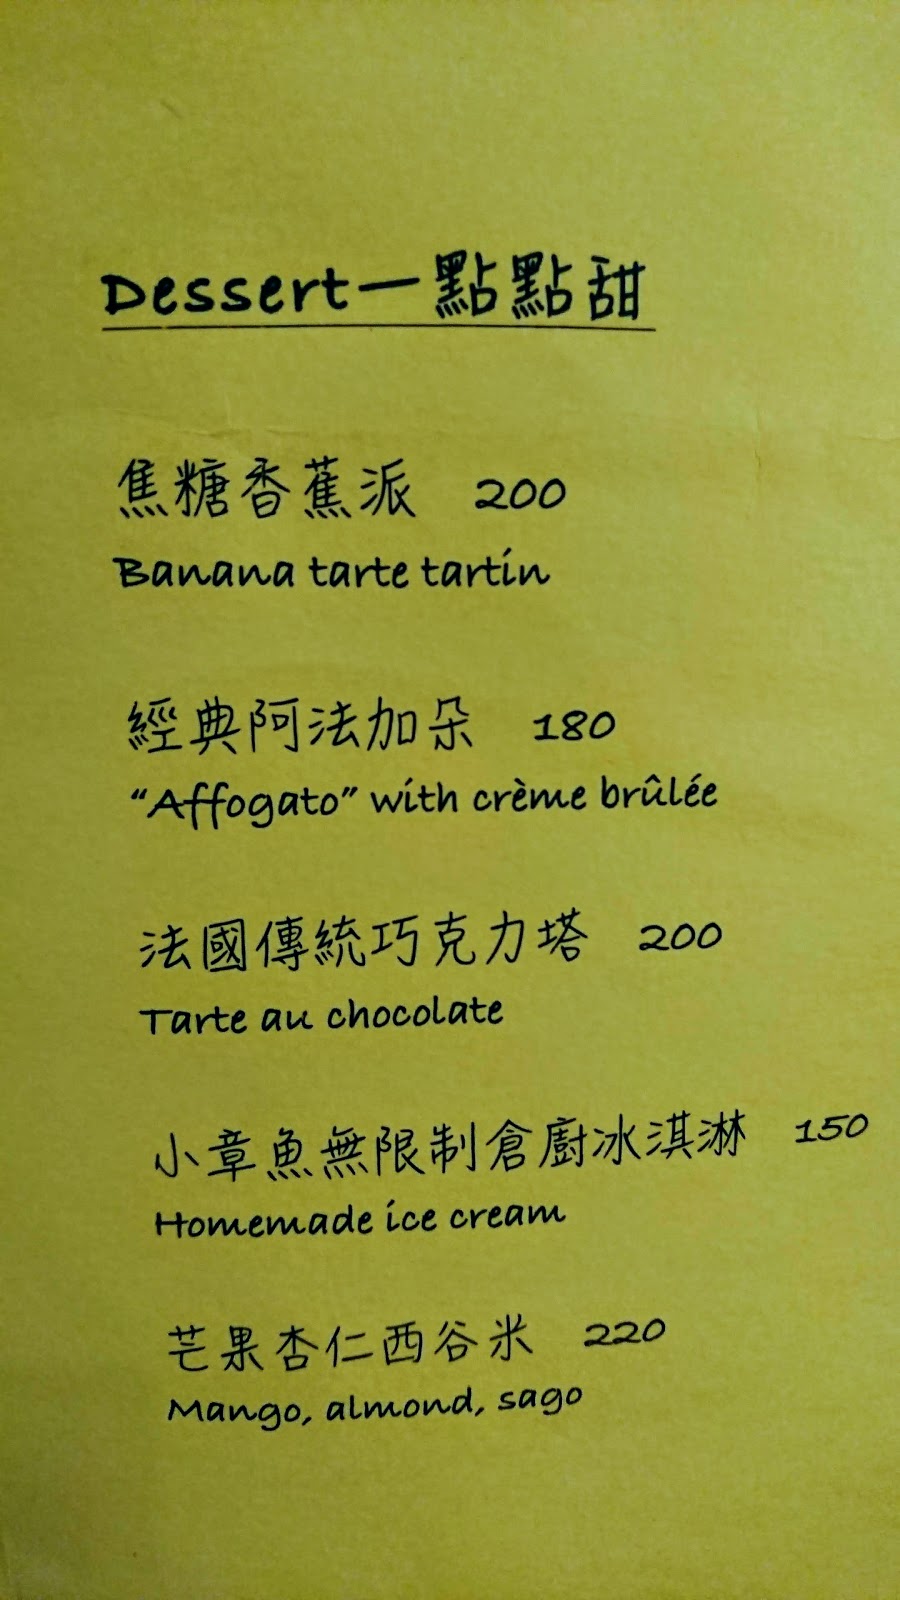 Dessert一點點甜
焦糖香蕉派 200
Banana tarte tartin
經典阿法加朵 180
“Affogato” with crème brûlée
法國傳統巧克力塔 200
Tarte au chocolate
小章魚無限制倉廚冰淇淋 150
Homemade ice cream
芒果杏仁西谷米 220
Mango, almond, sago